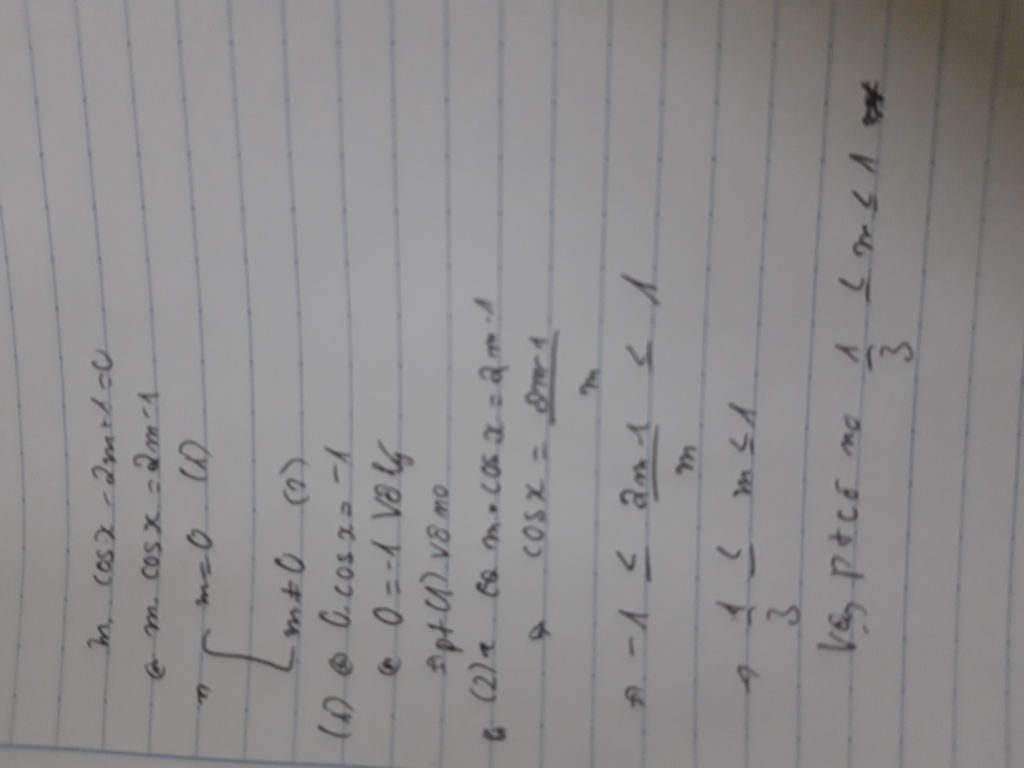 m cosx - 2m+1=0
⇔ m. cosx = 2m-1
⇒ [ m=0 (1)
m≠0 (2)
(1) ⇔ 0. cosx = -1
⇔ 0 = -1 Vô lý
⇒ pt (1) vô no
(2) ⇔ m. cosx = 2m-1
⇒ cosx = \frac{2m-1}{m}
⇒ -1 ≤ \frac{2m-1}{m} ≤ 1
⇒ \frac{1}{3} ≤ m ≤ 1
Vậy pt có no \frac{1}{3} ≤ m ≤ 1